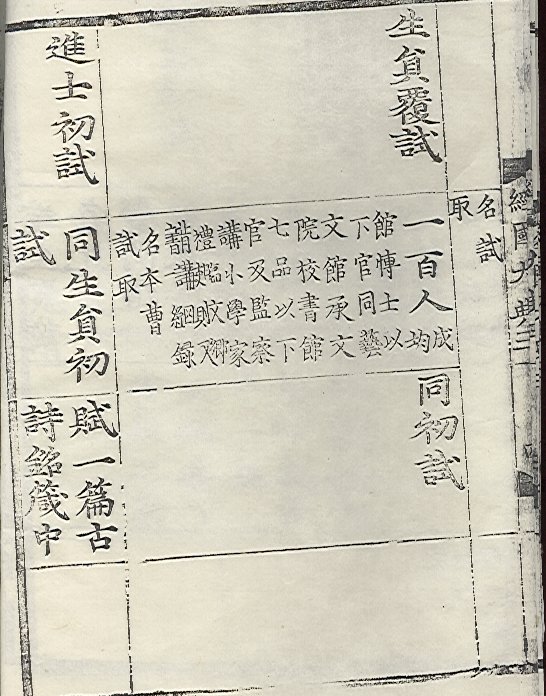 經國大典三
名試
取
生員覆試
一百人
成均
館博士以
下官同藝
文館承文
院校書館
七品以下
官及監察
講小學家
禮
講 錄
名本曹
試取
同初試
進士初試
同生員初
試
賦一篇古
詩銘箴中